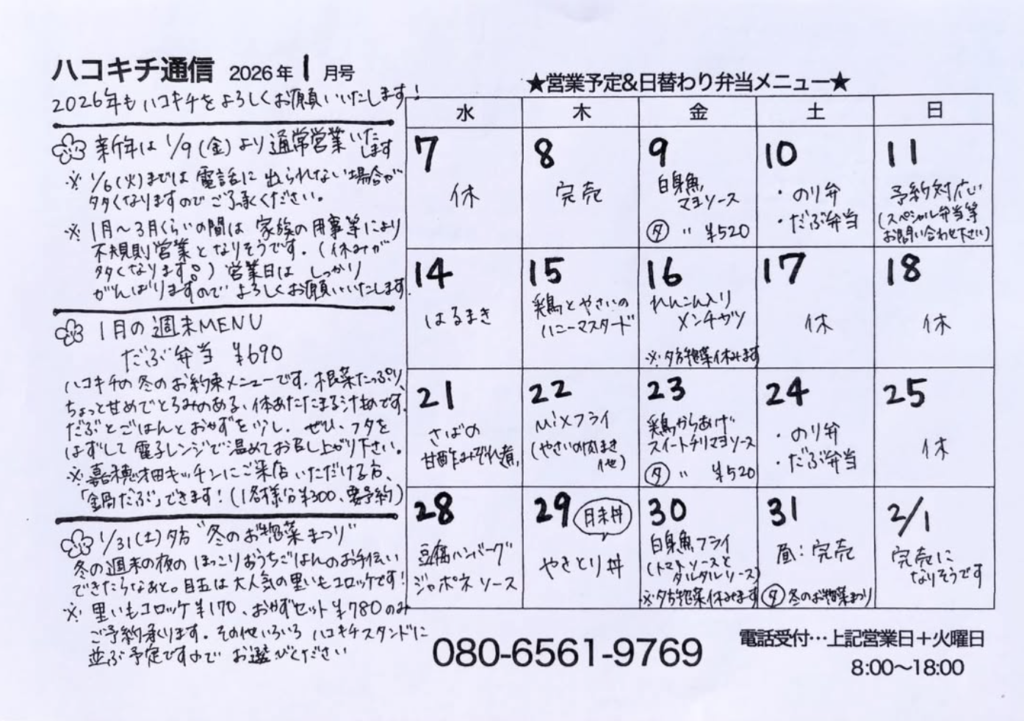 ハコキチ通信 2026年1月号
2026年もハコキチをよろしくお願いいたします!
新年は 1/9(金)より通常営業いたします
※ 1/6(火)までは 電話に出られない場合が
多くなりますのでご了承ください。
※ 1月〜3月くらいの間は 家族の用事等により
不規則営業となりそうです。(休みが
多くなります。) 営業日は しっかり
がんばりますので よろしくお願いいたします
1月の週末MENU
だぶ弁当 ¥690
ハコキチの冬のお約束メニューです。根菜たっぷり、
ちょっと甘めでとろみのある、体あたたまる汁物です。
だぶとごはんとおかずを少し。ぜひ、フタを
はずして 電子レンジで温めてお召し上がり下さい。
※嘉穂畑キッチンにご来店いただける方、
「全局だぶ」できます!(1名様分¥300、要予約)
1/31(土)夕方 "冬のお惣菜まつり"
冬の週末の夜の ほっこりおうちごはんのお手伝い
できたらなあと。目玉は大人気の里いもコロッケです!
※ 里いもコロッケ¥170、おかずセット¥780のみ
ご予約承ります。その他いろいろ ハコキチスタンドに
並ぶ予定ですので お選びください
★営業予定&日替わり弁当メニュー★
水 木 金 土 日
7 休
8 完売
9 白身魚
マヨソース
夕 〃 ¥520
10 ・のり弁
・だぶ弁当
11 予約対応
(スペシャル弁当等
お問い合わせ下さい)
14 はるまき
15 鶏とやさいの
ハニーマスタード
16 れんこん入り
メンチカツ
※夕方惣菜休みます
17 休
18 休
21 さばの
甘酢みぞれ煮
22 Mixフライ
(やさいの肉まき
他)
23 鶏からあげ
スイートチリマヨソース
夕 〃 ¥520
24 ・のり弁
・だぶ弁当
25 休
28 豆腐ハンバーグ
ジャポネソース
29 月末丼
やきとり丼
30 白身魚フライ
(トマトソースと
タルタルソース)
※夕方惣菜休みます
31 昼:完売
夕 冬のお惣菜まつり
2/1 完売に
なりそうです
080-6561-9769
電話受付…上記営業日+火曜日
8:00〜18:00